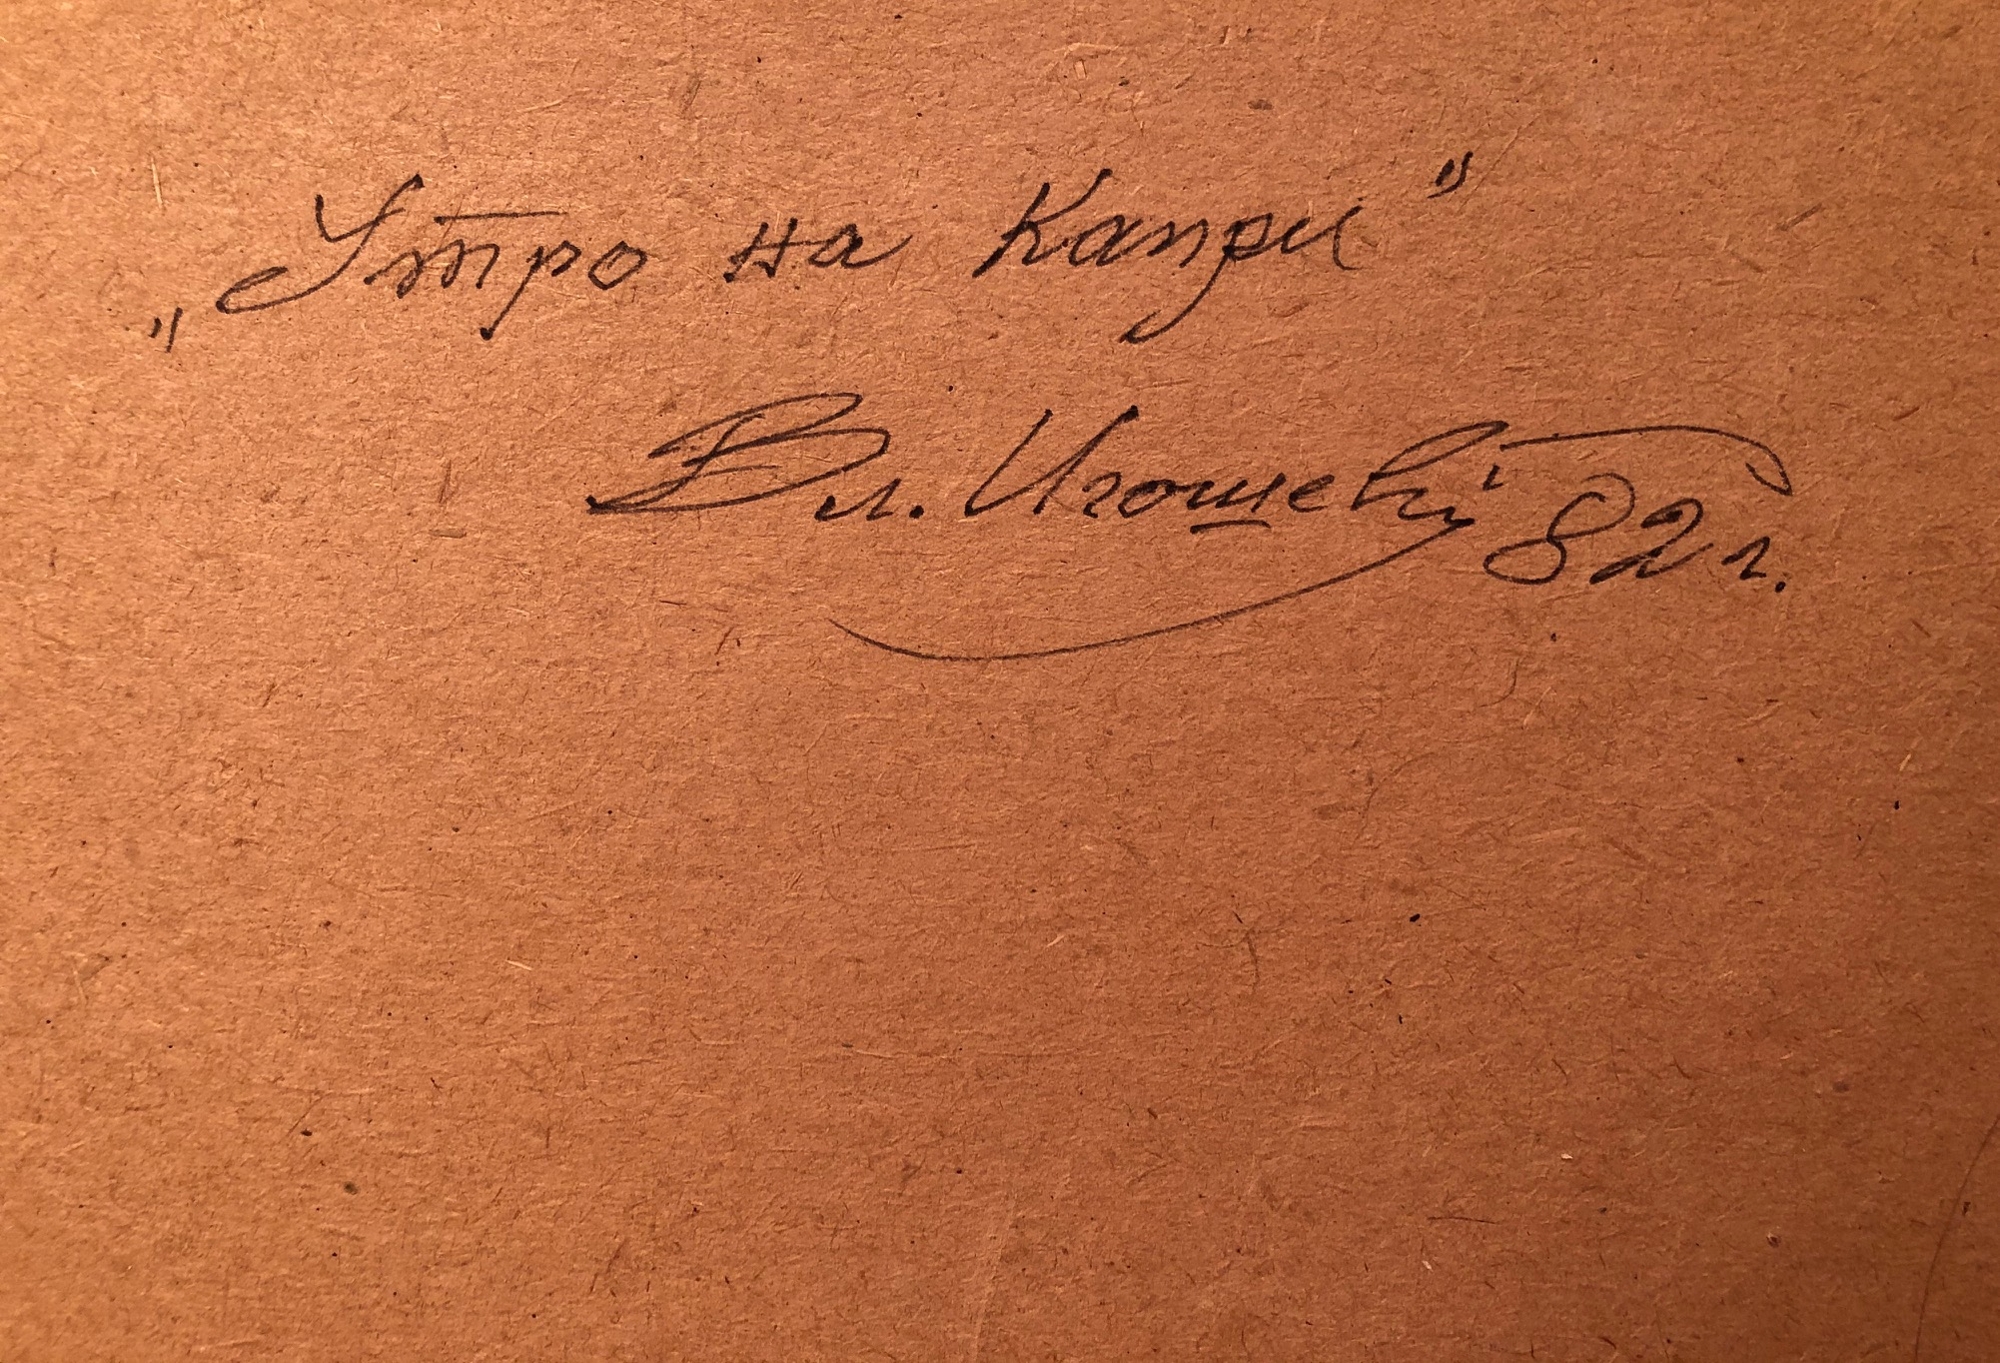 „Утро на Капри"
Вл. Игошев 82 г.